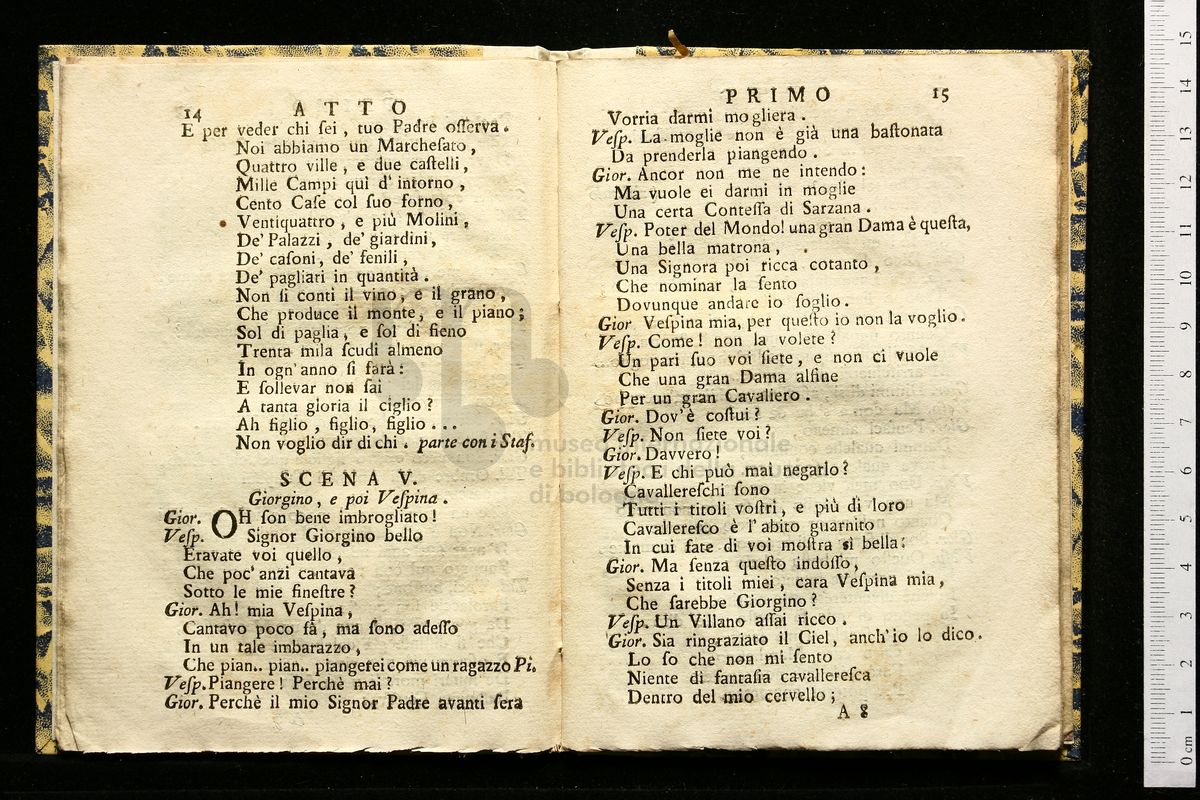 14 ATTO
E per veder chi ſei, tuo Padre oſſerva.
Noi abbiamo un Marcheſato,
Quattro ville, e due caſtelli,
Mille Campi quì d' intorno,
Cento Caſe col ſuo forno,
Ventiquattro, e più Molini,
De' Palazzi, de' giardini,
De' caſoni, de' fenili,
De' pagliari in quantità.
Non ſi conti il vino, e il grano,
Che produce il monte, e il piano;
Sol di paglia, e ſol di fieno
Trenta mila ſcudi almeno
In ogn' anno ſi farà:
E ſollevar non ſai
A tanta gloria il ciglio?
Ah figlio, figlio, figlio...
Non voglio dir di chi. parte con i Staf.
SCENA V.
Giorgino, e poi Veſpina.
Gior. OH ſon bene imbrogliato!
Veſp. Signor Giorgino bello
Eravate voi quello,
Che poc' anzi cantava
Sotto le mie fineſtre?
Gior. Ah! mia Veſpina,
Cantavo poco fà, ma ſono adeſſo
In un tale imbarazzo,
Che pian.. pian.. piangerei come un ragazzo Pi.
Veſp. Piangere! Perchè mai?
Gior. Perchè il mio Signor Padre avanti ſera
PRIMO 15
Vorria darmi mogliera.
Veſp. La moglie non è già una baſtonata
Da prenderla piangendo.
Gior. Ancor non me ne intendo:
Ma vuole ei darmi in moglie
Una certa Conteſſa di Sarzana.
Veſp. Poter del Mondo! una gran Dama è queſta,
Una bella matrona,
Una Signora poi ricca cotanto,
Che nominar la ſento
Dovunque andare io ſoglio.
Gior Veſpina mia, per queſto io non la voglio.
Veſp. Come! non la volete?
Un pari ſuo voi ſiete, e non ci vuole
Che una gran Dama alfine
Per un gran Cavaliero.
Gior. Dov' è coſtui?
Veſp. Non ſiete voi?
Gior. Davvero!
Veſp. E chi può mai negarlo?
Cavallereſchi ſono
Tutti i titoli voſtri, e più di loro
Cavallereſco è l' abito guarnito
In cui fate di voi moſtra sì bella:
Gior. Ma ſenza queſto indoſſo,
Senza i titoli miei, cara Veſpina mia,
Che ſarebbe Giorgino?
Veſp. Un Villano aſſai ricco.
Gior. Sia ringraziato il Ciel, anch' io lo dico.
Lo ſo che non mi ſento
Niente di fantaſia cavallereſca
Dentro del mio cervello;
A 8
museo internazionale
e biblioteca della musica
di bologna
0 cm 1 2 3 4 5 6 7 8 9 10 11 12 13 14 15